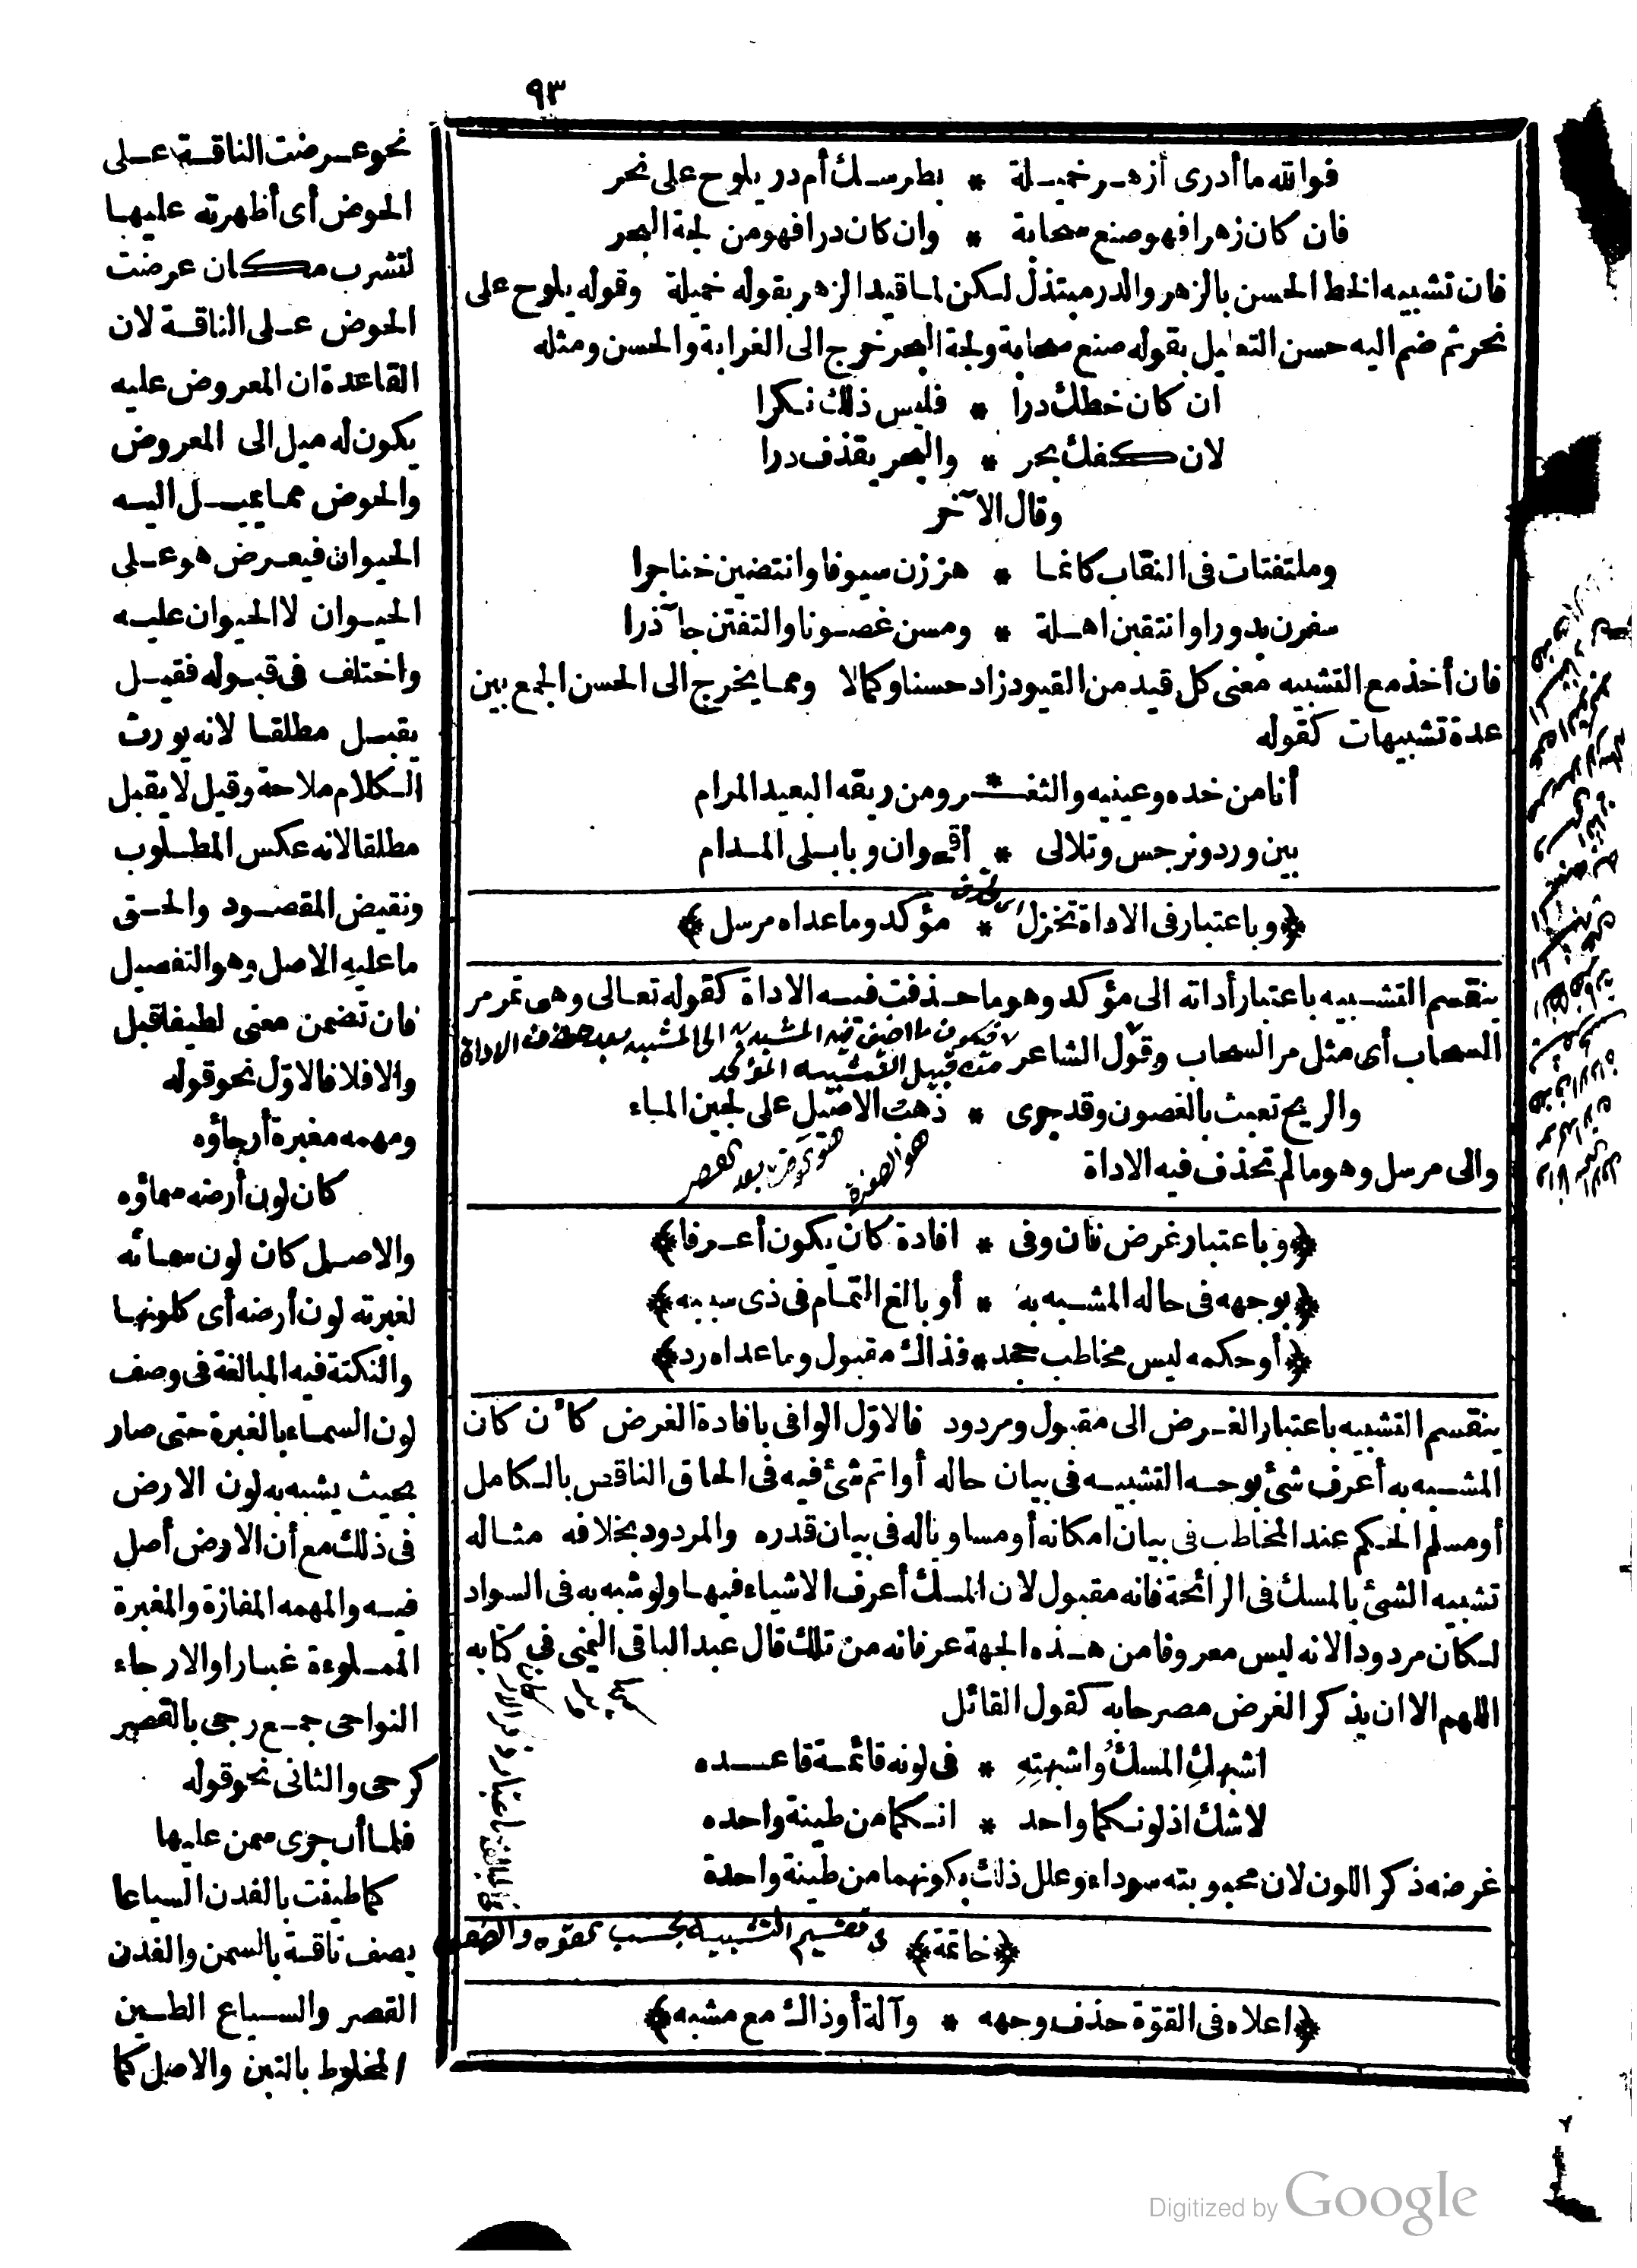 ٩٣
فوالله ما أدرى أزهـر خميـلة * بطرسـك أم در يلوح على نحر
فان كان زهرا فهو صنع سحابة * وان كان درا فهو من لجة البحر
فان تشبيه الخط الحسن بالزهر والدر مبتذل لكن لما قيد الزهر بقوله خميلة وقوله يلوح على
نحر ثم ضم اليه حسن التعليل بقوله صنع سحابة ولجة البحر خرج الى الغرابة والحسن ومثله
ان كان خطك درا * فليس ذلك نكرا
لان كفك بحر * والبحر يقذف درا
وقال الآخر
وملتفتات فى النقاب كانما * هززن سيوفا وانتضين خناجرا
سفرن بدورا وانتقبن اهلة * ومسن غصونا والتفتن جآذرا
فان أخذ مع التشبيه معنى كل قيد من القيود زاد حسنا وكمالا ومما يخرج الى الحسن الجمع بين
عدة تشبيهات كقوله
أنا من خده وعينيه والثغـ * ـر ومن ريقه البعيد المرام
بين ورد ونرجس وتلالى * أقحوان وبابلى المدام
﴿وباعتبار فى الاداة تختزل * مؤكد وما عداه مرسل﴾
ينقسم التشبيه باعتبار أداته الى مؤكد وهو ما حذفت فيه الاداة كقوله تعالى وهى تمر مر
السحاب أى مثل مر السحاب وقول الشاعر
والريح تعبث بالغصون وقد جرى * ذهب الاصيل على لجين الماء
والى مرسل وهو ما لم تحذف فيه الاداة
﴿وباعتبار غرض فان وفى * افادة كان يكون أعرفا﴾
﴿بوجهه فى حاله المشبه به * أو بالغ التمام فى ذى سببه﴾
﴿أو حكمه ليس مخاطب جحد * فذاك مقبول وما عداه رد﴾
ينقسم التشبيه باعتبار الغرض الى مقبول ومردود فالاول الوافى بافادة الغرض كأن كان
المشبه به أعرف شئ بوجه التشبيه فى بيان حاله أو اتم شئ فيه فى الحاق الناقص بالكامل
أو مسلم الحكم عند المخاطب فى بيان امكانه أو مساويا له فى بيان قدره والمردود بخلافه مثاله
تشبيه الشئ بالمسك فى الرائحة فانه مقبول لان المسك أعرف الاشياء فيها ولو شبه به فى السواد
لكان مردودا لانه ليس معروفا من هذه الجهة عرفانه من تلك قال عبد الباقى اليمنى فى كتابه
اللهم الا ان يذكر الغرض مصرحا به كقول القائل
اشبهك المسك واشبهته * فى لونه قائمة قاعده
لاشك اذ لونكما واحد * انكما من طينة واحده
غرضه ذكر اللون لان محبوبته سوداء وعلل ذلك بكونهما من طينة واحدة
﴿خاتمة﴾ فى تقسيم التشبيه بحسب القوه والضعف
﴿اعلاه فى القوة حذف وجهه * وآلة أو ذاك مع مشبه﴾
نحو عرضت الناقة على
الحوض أى أظهرته عليها
لتشرب مكان عرضت
الحوض على الناقة لان
القاعدة ان المعروض عليه
يكون له ميل الى المعروض
والحوض مما يميل اليه
الحيوان فيعرض هو على
الحيوان لا الحيوان عليه
واختلف فى قبوله فقيل
يقبل مطلقا لانه يورث
الكلام ملاحة وقيل لا يقبل
مطلقا لانه عكس المطلوب
ونقيض المقصود والحق
ما عليه الاصل وهو التفصيل
فان تضمن معنى لطيفا قبل
والا فلا فالاول نحو قوله
ومهمه مغبرة أرجاؤه
كان لون أرضه سماؤه
والاصل كان لون سمائه
لغبرته لون أرضه أى كلونها
والنكتة فيه المبالغة فى وصف
لون السماء بالغبرة حتى صار
بحيث يشبه به لون الارض
فى ذلك مع أن الارض أصل
فيه والمهمه المفازة والمغبرة
المملوءة غبارا والارجاء
النواحى جمع رجى بالقصر
كرحى والثانى نحو قوله
فلما أن جرى سمن عليها
كما طينت بالفدن السياعا
يصف ناقة بالسمن والفدن
القصر والسياع الطين
المخلوط بالتبن والاصل كما
Digitized by Google